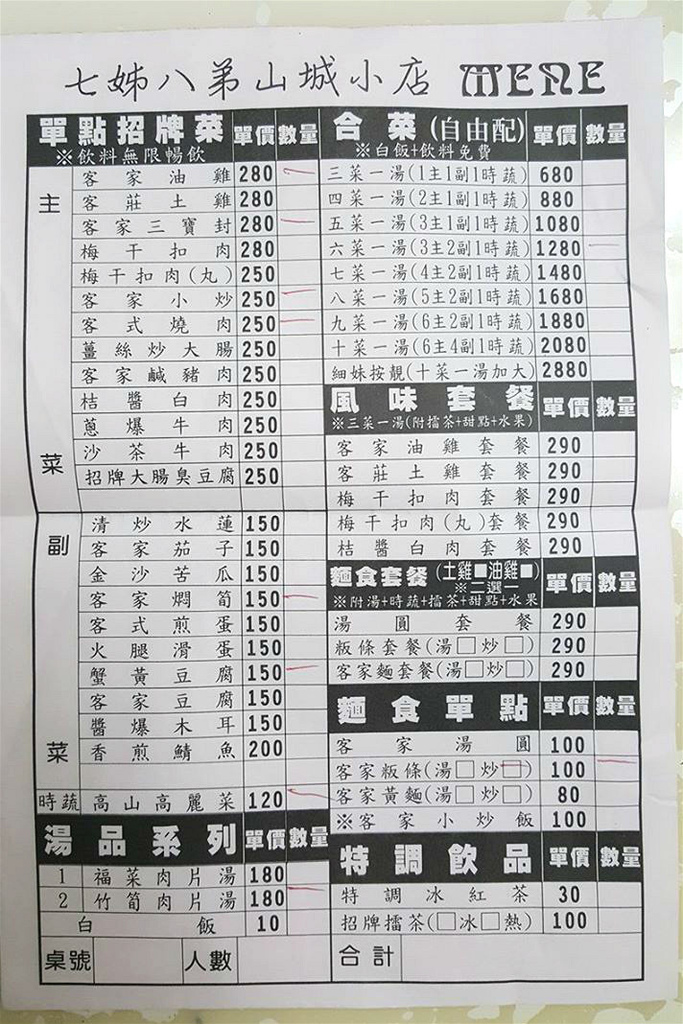 七姊八弟山城小店 MENE
單點招牌菜 單價 數量
※飲料無限暢飲
主菜
客家油雞 280
客莊土雞 280
客家三寶封 280
梅干扣肉 280
梅干扣肉(丸) 250
客家小炒 250
客式燒肉 250
薑絲炒大腸 250
客家鹹豬肉 250
桔醬白肉 250
蔥爆牛肉 250
沙茶牛肉 250
招牌大腸臭豆腐 250
副菜
清炒水蓮 150
客家茄子 150
金沙苦瓜 150
客家燜筍 150
客式煎蛋 150
火腿滑蛋 150
蟹黃豆腐 150
客家豆腐 150
醬爆木耳 150
香煎鯖魚 200
時蔬 高山高麗菜 120
湯品系列 單價 數量
1 福菜肉片湯 180
2 竹筍肉片湯 180
白飯 10
桌號 人數
合菜(自由配) 單價 數量
※白飯+飲料免費
三菜一湯(1主1副1時蔬) 680
四菜一湯(2主1副1時蔬) 880
五菜一湯(3主1副1時蔬) 1080
六菜一湯(3主2副1時蔬) 1280
七菜一湯(4主2副1時蔬) 1480
八菜一湯(5主2副1時蔬) 1680
九菜一湯(6主2副1時蔬) 1880
十菜一湯(6主4副1時蔬) 2080
細妹按靚(十菜一湯加大) 2880
風味套餐 單價 數量
※三菜一湯(附擂茶+甜點+水果)
客家油雞套餐 290
客莊土雞套餐 290
梅干扣肉套餐 290
梅干扣肉(丸)套餐 290
桔醬白肉套餐 290
麵食套餐(土雞■油雞■) 單價 數量
※二選一
※附湯+時蔬+擂茶+甜點+水果
湯圓套餐 290
粄條套餐(湯□炒□) 290
客家麵套餐(湯□炒□) 290
麵食單點 單價 數量
客家湯圓 100
客家粄條(湯□炒□) 100
客家黃麵(湯□炒□) 80
※客家小炒飯 100
特調飲品 單價 數量
特調冰紅茶 30
招牌擂茶(□冰□熱) 100
合計